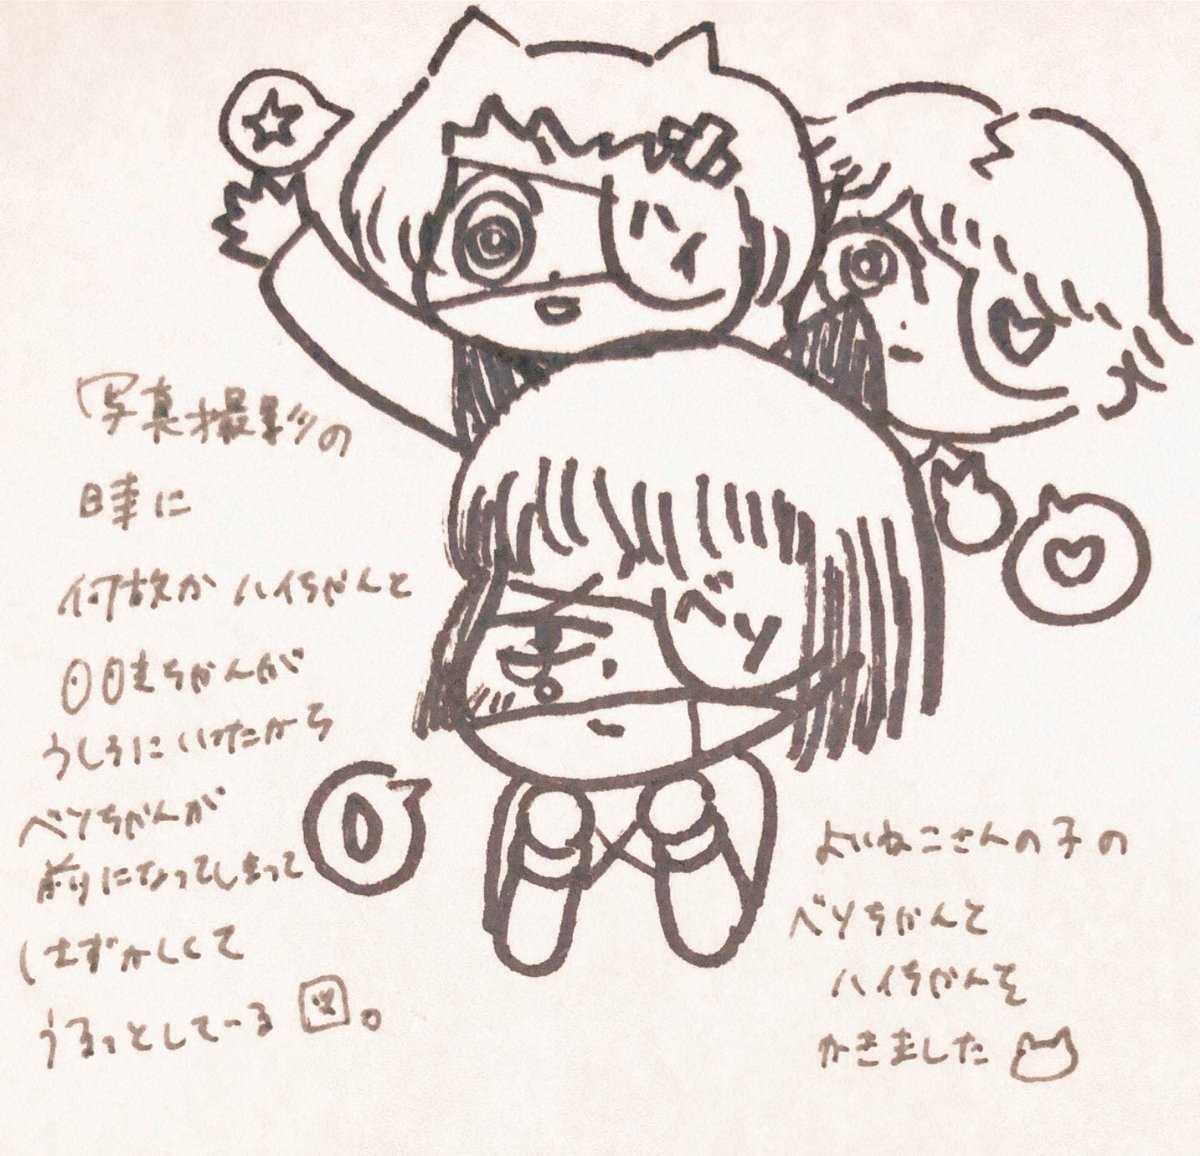 ハイ
ベソ
写真撮影の
時に
何故か ハイちゃんと
ちゃんが
うしろにいたから
ベソちゃんが
前になってしまって
はずかしくて
うるっとしている 図。
よいねこさんの子の
ベソちゃんと
ハイちゃんを
かきました